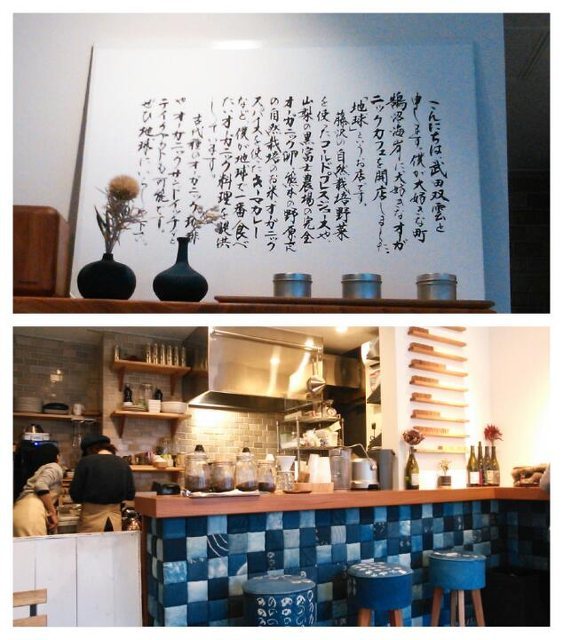 こんにちは。武田双雲と
申します。僕が大好きな町
鵠沼海岸に大好きなオーガ
ニックカフェを開店しました。
「地球」というお店です。
藤沢の自然栽培野菜
を使ったコールドプレスジュースや、
山梨の黒富士農場の完全
オーガニック卵、熊本の野原さん
の自然栽培のお米、オーガニック
スパイスを使ったキーマカレー
など、僕が地球で一番食べ
たいオーガニック料理を提供
しています。
古代種のオーガニック珈琲
やオーガニックサンドイッチなど
テイクアウトも可能です。
ぜひ地球に